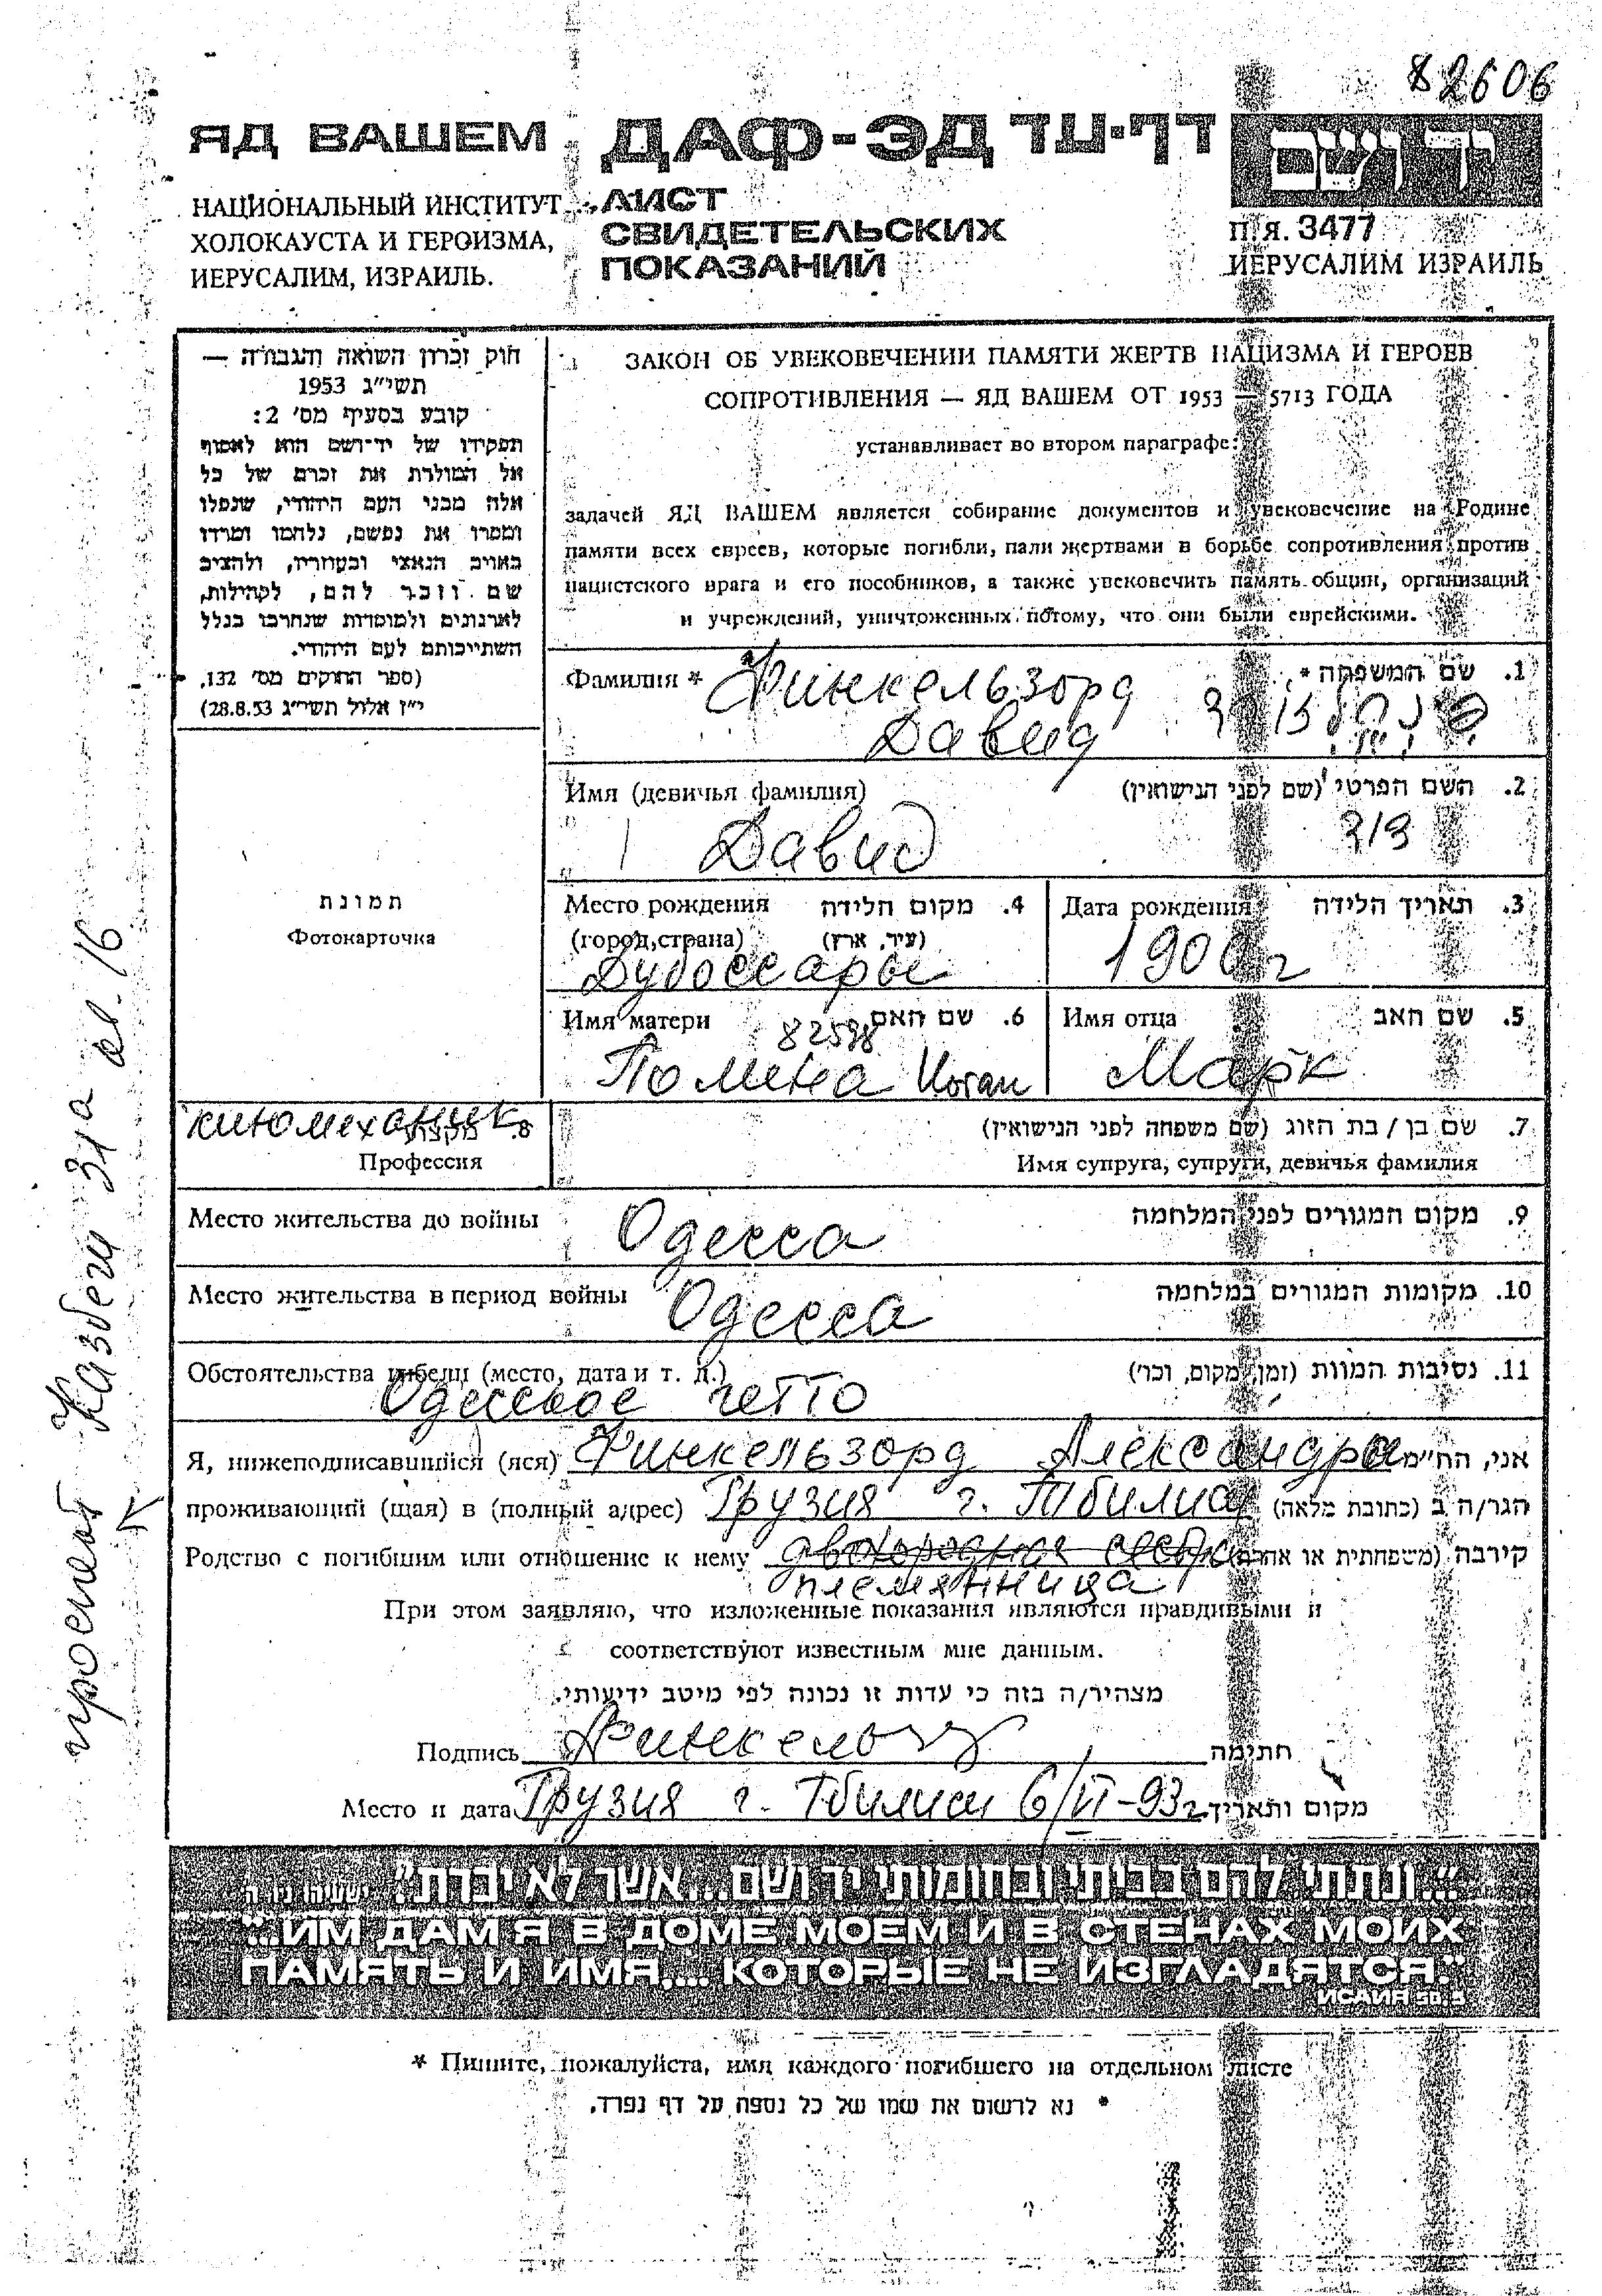 82606
ЯД ВАШЕМ
НАЦИОНАЛЬНЫЙ ИНСТИТУТ
ХОЛОКАУСТА И ГЕРОИЗМА,
ИЕРУСАЛИМ, ИЗРАИЛЬ.
ДАФ-ЭД דף-עד
ЛИСТ
СВИДЕТЕЛЬСКИХ
ПОКАЗАНИЙ
יד ושם
П.Я. 3477
ИЕРУСАЛИМ ИЗРАИЛЬ
חוק זכרון השואה והגבורה —
תשי״ג 1953
קובע בסעיף מס׳ 2:
תפקידו של יד־ושם הוא לאסוף
אל המולדת את זכרם של כל
אלה מבני העם היהודי, שנפלו
ומסרו את נפשם, נלחמו ומרדו
באויב הנאצי ובעוזריו, ולהציב
שם וזכר להם, לקהילות,
לארגונים ולמוסדות שנחרבו בגלל
השתייכותם לעם היהודי.
(ספר החוקים מס׳ 132,
י״ז אלול תשי״ג 28.8.53)
ЗАКОН ОБ УВЕКОВЕЧЕНИИ ПАМЯТИ ЖЕРТВ НАЦИЗМА И ГЕРОЕВ
СОПРОТИВЛЕНИЯ — ЯД ВАШЕМ ОТ 1953 — 5713 ГОДА
устанавливает во втором параграфе:
задачей ЯД ВАШЕМ является собирание документов и увековечение на Родине
памяти всех евреев, которые погибли, пали жертвами в борьбе сопротивления против
нацистского врага и его пособников, а также увековечить память общин, организаций
и учреждений, уничтоженных потому, что они были еврейскими.
Фамилия * Финкельзорд 1. שם המשפחה *
Давид
Имя (девичья фамилия) 2. השם הפרטי (שם לפני הנישואין)
Давид דוד
תמונת
Фотокарточка
Место рождения 4. מקום הלידה
(город, страна) (עיר, ארץ)
Дубоссары
Дата рождения 3. תאריך הלידה
1900г
Имя матери 6. שם האם
82598
Помена Коган
Имя отца 5. שם האב
Марк
киномеханик
8. מקצוע
Профессия
7. שם בן / בת הזוג (שם משפחה לפני הנישואין)
Имя супруга, супруги, девичья фамилия
Место жительства до войны Одесса 9. מקום המגורים לפני המלחמה
Место жительства в период войны Одесса 10. מקומות המגורים במלחמה
Обстоятельства гибели (место, дата и т. д.) 11. נסיבות המוות (זמן, מקום, וכר׳)
Одесское гетто
Я, нижеподписавшийся (яся) Финкельзорд Александра אני, החי״מ
проживающий (щая) в (полный адрес) Грузия г. Тбилиси הגר/ה ב (כתובת מלאה)
Родство с погибшим или отношение к нему двоюродная сестра קירבה (משפחתית או אחרת)
племянница
При этом заявляю, что изложенные показания являются правдивыми и
соответствуют известным мне данным.
מצהיר/ה בזה כי עדות זו נכונה לפי מיטב ידיעותי.
Подпись חתימה
Место и дата Грузия г. Тбилиси 6/VI-93г. מקום ותאריך
проспект Казбеги 31а кв. 16
״...ונתתי להם בביתי ובחומותי יד ושם...אשר לא יכרת״. ישעיהו נו ה
"...ИМ ДАМ Я В ДОМЕ МОЕМ И В СТЕНАХ МОИХ
ПАМЯТЬ И ИМЯ.... КОТОРЫЕ НЕ ИЗГЛАДЯТСЯ."
ИСАИЯ 56.5
* Пишите, пожалуйста, имя каждого погибшего на отдельном листе
* נא לרשום את שמו של כל נספה על דף נפרד.